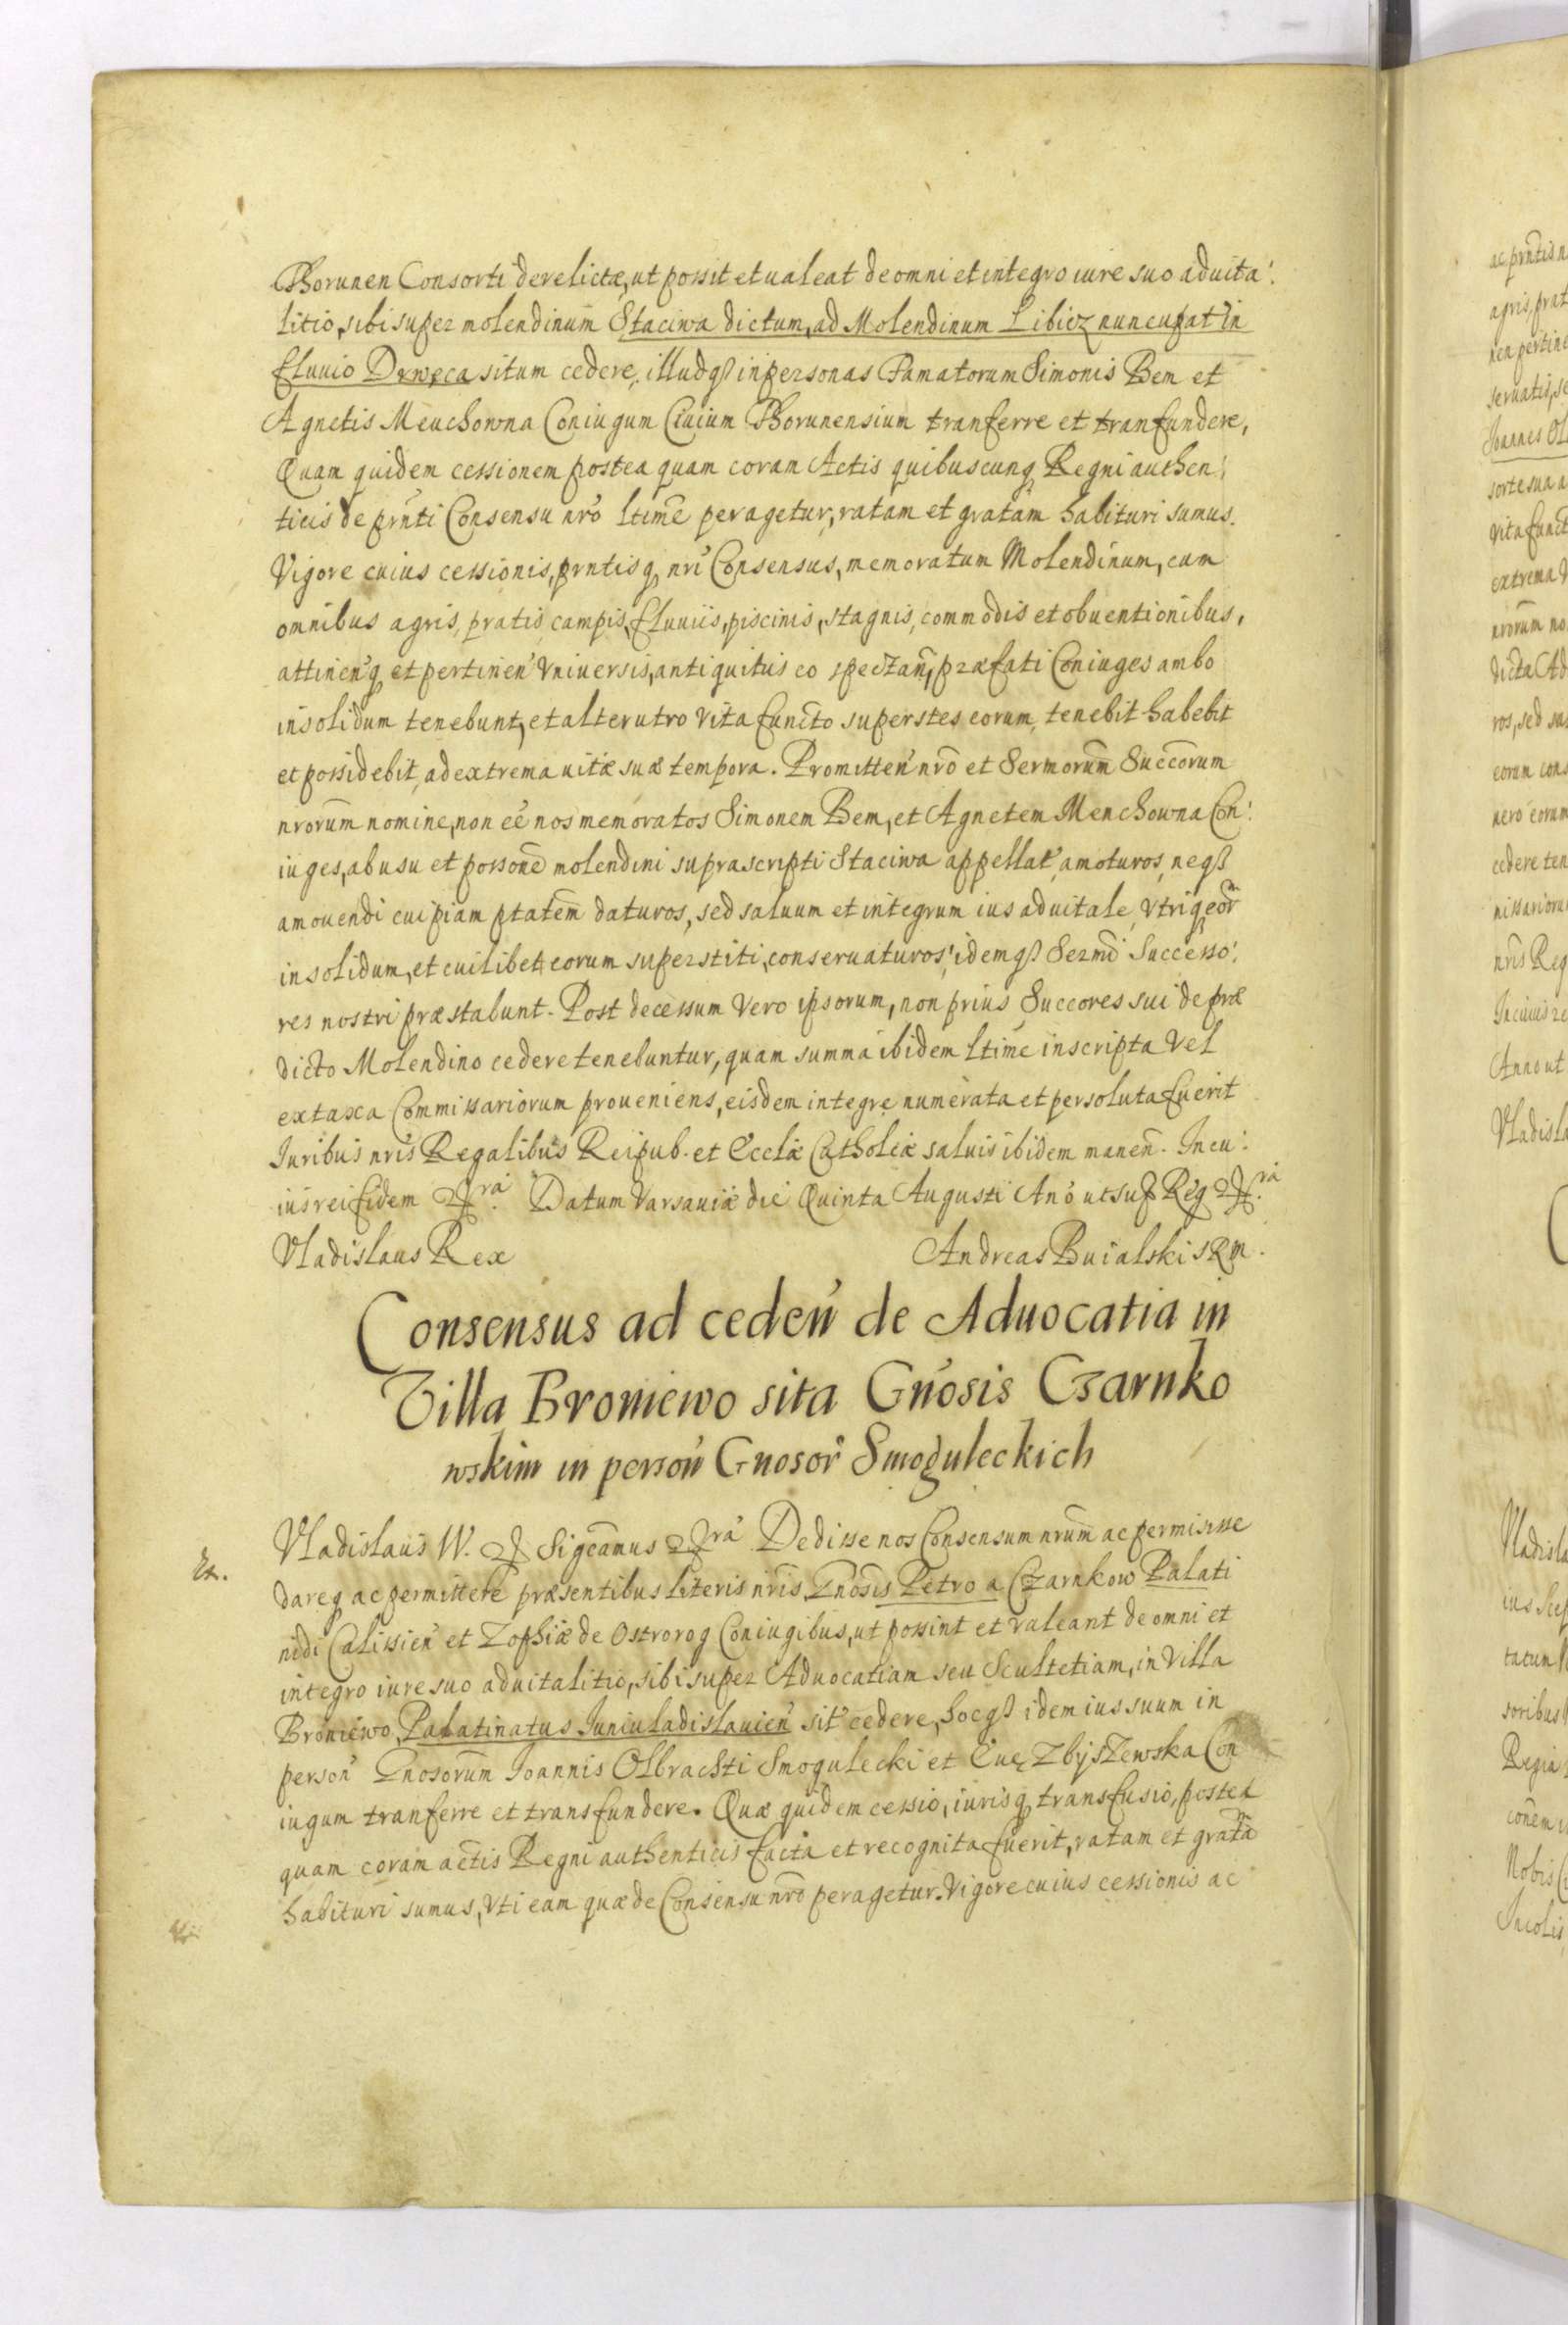 Thorunen Consorti derelictæ, ut possit et ualeat de omni et integro iure suo aduita:
litio, sibi super molendinum Staciwa dictum, ad Molendinum Libicz nuncupat in
fluuio Drwęca situm cedere, illudq̃ in personas Famatorum Simonis Bem et
Agnetis Menchowna Coniugum Ciuium Thorunensium tranferre et tranfundere,
Quam quidem cessionem postea quam coram Actis quibuscunq̃ Regni authen:
ticis de pñti Consensu nr̃o ltimẽ peragetur, ratam et gratam habituri sumus.
Vigore cuius cessionis, pr̃ntisq̃ nr̃i Consensus, memoratum Molendinum, cum
omnibus agris, pratis, campis, fluuiis, piscinis, stagnis, commodis et obuentionibus,
attineñq̃ et pertineñ vniuersis, antiquitus eo spectañ, præfati Coniuges ambo
in solidum tenebunt, et alterutro vita functo superstes eorum, tenebit habebit
et possidebit, ad extrema uitæ suæ tempora. Promitteñ nr̃o et Sermorum̃ Succorum̃
nrorum̃ nomine, non eẽ nos memoratos Simonem Bem, et Agnetem Menchowna Con:
iuges, ab usu et possonẽ molendini suprascripti Staciwa appellat̃ amoturos, neq̃
amouendi cuipiam ptatem̃ daturos, sed saluum et integrum ius aduitale vtriq̃ eor̃m
in solidum, et cuilibet eorum superstiti, conseruaturos, idemq̃ Sermi Successo:
res nostri præstabunt. Post decessum vero ipsorum, non prius Succores sui de præ
dicto Molendino cedere tenebuntur, quam summa ibidem ltimẽ inscripta vel
ex taxa Commissariorum proueniens, eisdem integre numerata et persoluta fuerit
Iuribus nr̃is Regalibus Reipub. et Eccliæ Catholicæ saluis ibidem maneñ. In cu:
ius rei fidem &ra. Datum Varsauiæ die Quinta Augusti Año ut sup Reg &ra
Vladislaus Rex Andreas Buialski SRM.
Consensus ad cedeñ de Aduocatia in
Villa Broniewo sita Gñosis Czarnko
wskim in persoñ Gnosor̃ Smoguleckich
Vladislaus IV. & Sigcamus &ra Dedisse nos Consensum nrum̃ ac permisisse
dareq̃ ac permittere præsentibus literis nr̃is Gnosis Petro a Czarnkow Palati
nidi Calissieñ et Zophiæ de Ostrorog Coniugibus, ut possint et valeant de omni et
integro iure suo aduitalitio, sibi super Aduocatiam seu Scultetiam, in Villa
Broniewo, Palatinatus Iuniuladislauieñ sit̃ cedere, hocq̃ idem ius suum in
persoñ Gnosorum̃ Joannis Olbrachti Smogulecki et Euę Zbyszewska Con
iugum tranferre et transfundere. Quæ quidem cessio, iurisq̃ transfusio, postea
quam coram actis Regni authenticis facta et recognita fuerit, ratam et gratam
habituri sumus, vti eam quæ de Consensu nr̃o peragetur. Vigore cuius cessionis ac